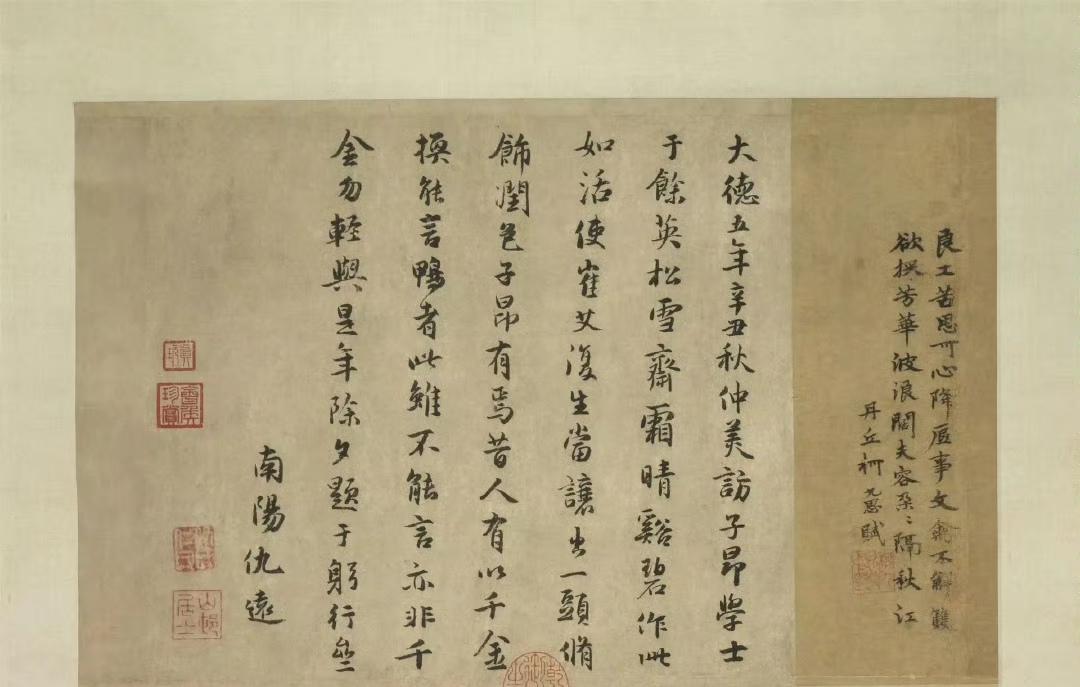 良工苦思可心降底事文禽不解雙
欲撰芳華波浪闊夫容朶〻隔秋江
丹丘柯九思賦
大德五年辛丑秋仲美訪子昂學士
于餘英松雪齋霜晴谿碧作此
如活使崔艾復生當讓出一頭脩
飾潤色子昂有焉昔人有以千金
換能言鴨者此雖不能言亦非千
金勿輕與是年除夕題于躬行齋
南陽仇遠
山邨居士